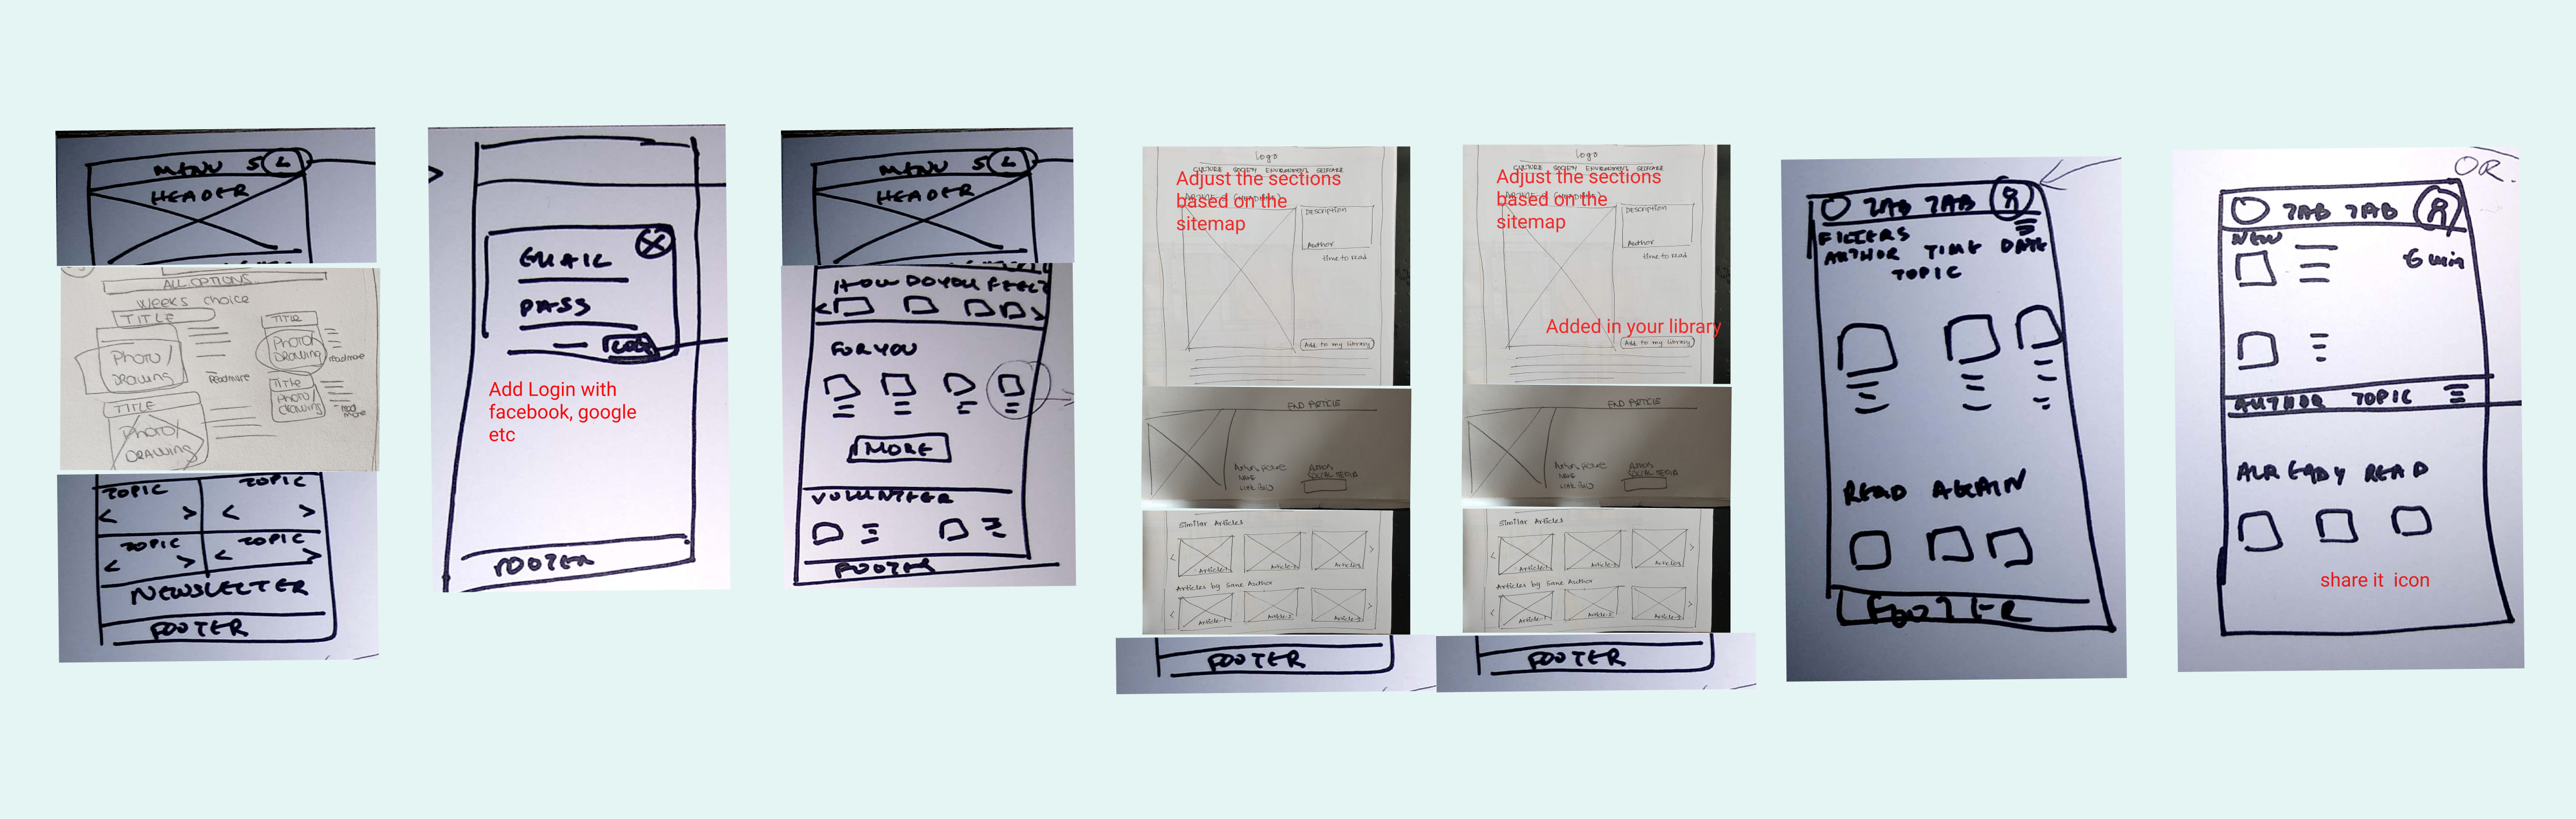 MENU S L
HEADER
ALL OPTIONS
WEEKS choice
TITLE
PHOTO/
DRAWING
Readmore
TITLE
PHOTO/
DRAWING
TITLE
PHOTO/
DRAWING
readmore
Title
PHOTO/
drawing
read
more
TOPIC TOPIC
< > < >
TOPIC TOPIC
< > < >
NEWSLETTER
FOOTER
EMAIL
PASS
Add Login with
facebook, google
etc
FOOTER
MENU S L
HEADER
HOW DO YOU FEEL?
< >
FOR YOU
MORE
VOLUNTEER
FOOTER
logo
CULTURE SOCIETY ENVIRONMENT SELFCARE
Adjust the sections
based on the
sitemap
Description
Author
time to read
Add to my library
END ARTICLE
AUTHORS PICTURE
NAME
LINK BIO
AUTHOR
SOCIAL MEDIA
Similar Articles
< >
Article-1 Article-2 Article-3
Articles by Same Author
< >
Article-1 Article-2 Article-3
FOOTER
logo
CULTURE SOCIETY ENVIRONMENT SELFCARE
Adjust the sections
based on the
sitemap
Description
Author
time to read
Added in your library
Add to my library
END ARTICLE
AUTHORS PICTURE
NAME
LINK BIO
AUTHOR
SOCIAL MEDIA
Similar Articles
< >
Article-1 Article-2 Article-3
Articles by Same Author
< >
Article-1 Article-2 Article-3
FOOTER
TAB TAB
FILTERS
AUTHOR TIME DATE
TOPIC
READ AGAIN
FOOTER
OR.
TAB TAB
NEW
6 min
AUTHOR TOPIC
ALREADY READ
share it icon